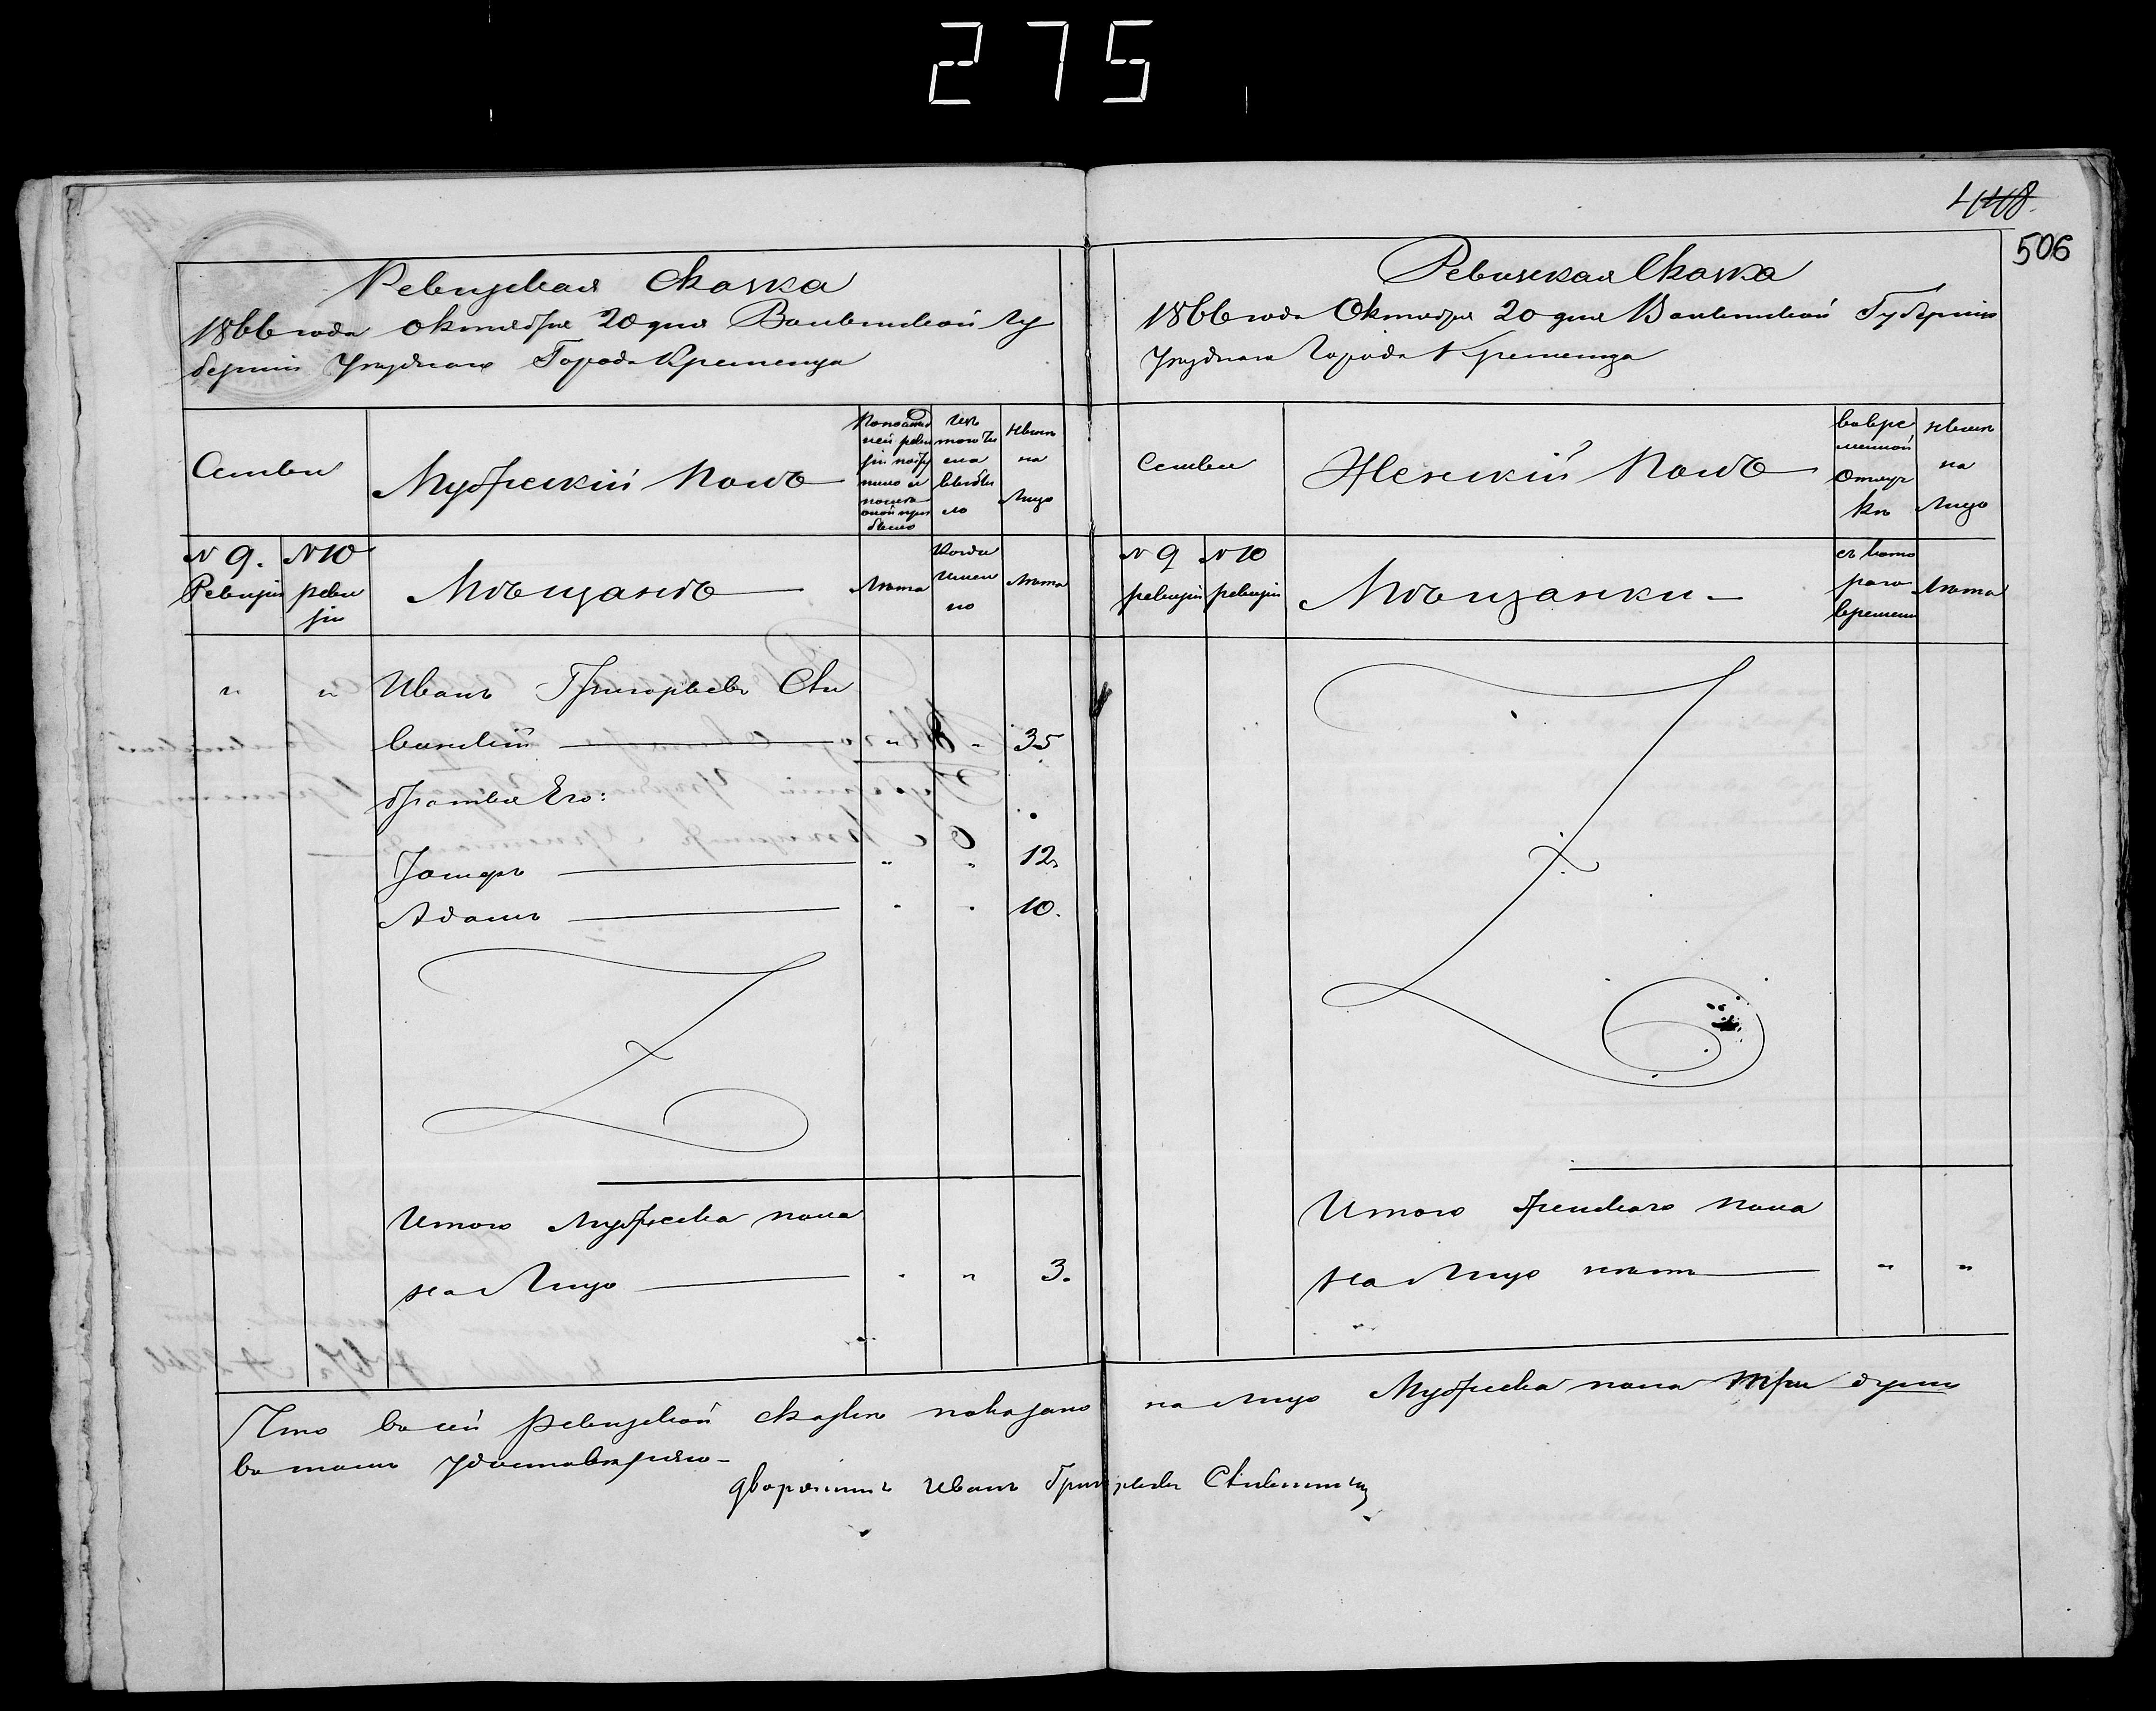 275
448.
506
Ревизская Сказка
1866 года октября 20 дня Волынской Гу
берніи Уезднаго Города Кременца
Семьи
Мужескій Полъ
По послѣд
ней реви
зіи
изъ
того чи
сла
выбы
ло
Нынѣ
на
лицо
N 9.
Ревизіи
N 10
реви
зіи
Мѣщанъ
Лѣта
Когда
имен
но
Лѣта
" " Иванъ Григорьевъ Сви
" " 35
братья Его:
Іосифъ " " 12.
Адамъ " " 10.
Итого Мужеска пола
на Лицо " " 3.
Ревизская Сказка
1866 года Октября 20 дня Волынской Губерніи
Уезднаго Города Кременца
Семьи
Женскій Полъ
во вре
менной
отлуч
кѣ
Нынѣ
на
Лицо
N 9
ревизіи
N 10
ревизіи
Мѣщанки
съ кото
раго
времени
Лѣта
Итого женскаго пола
на Лицо нѣтъ " "
Что в сей ревизской сказкѣ показано на лицо Мужеска пола три души
в томъ удостовѣряю
дворянинъ Иванъ Григорьевъ